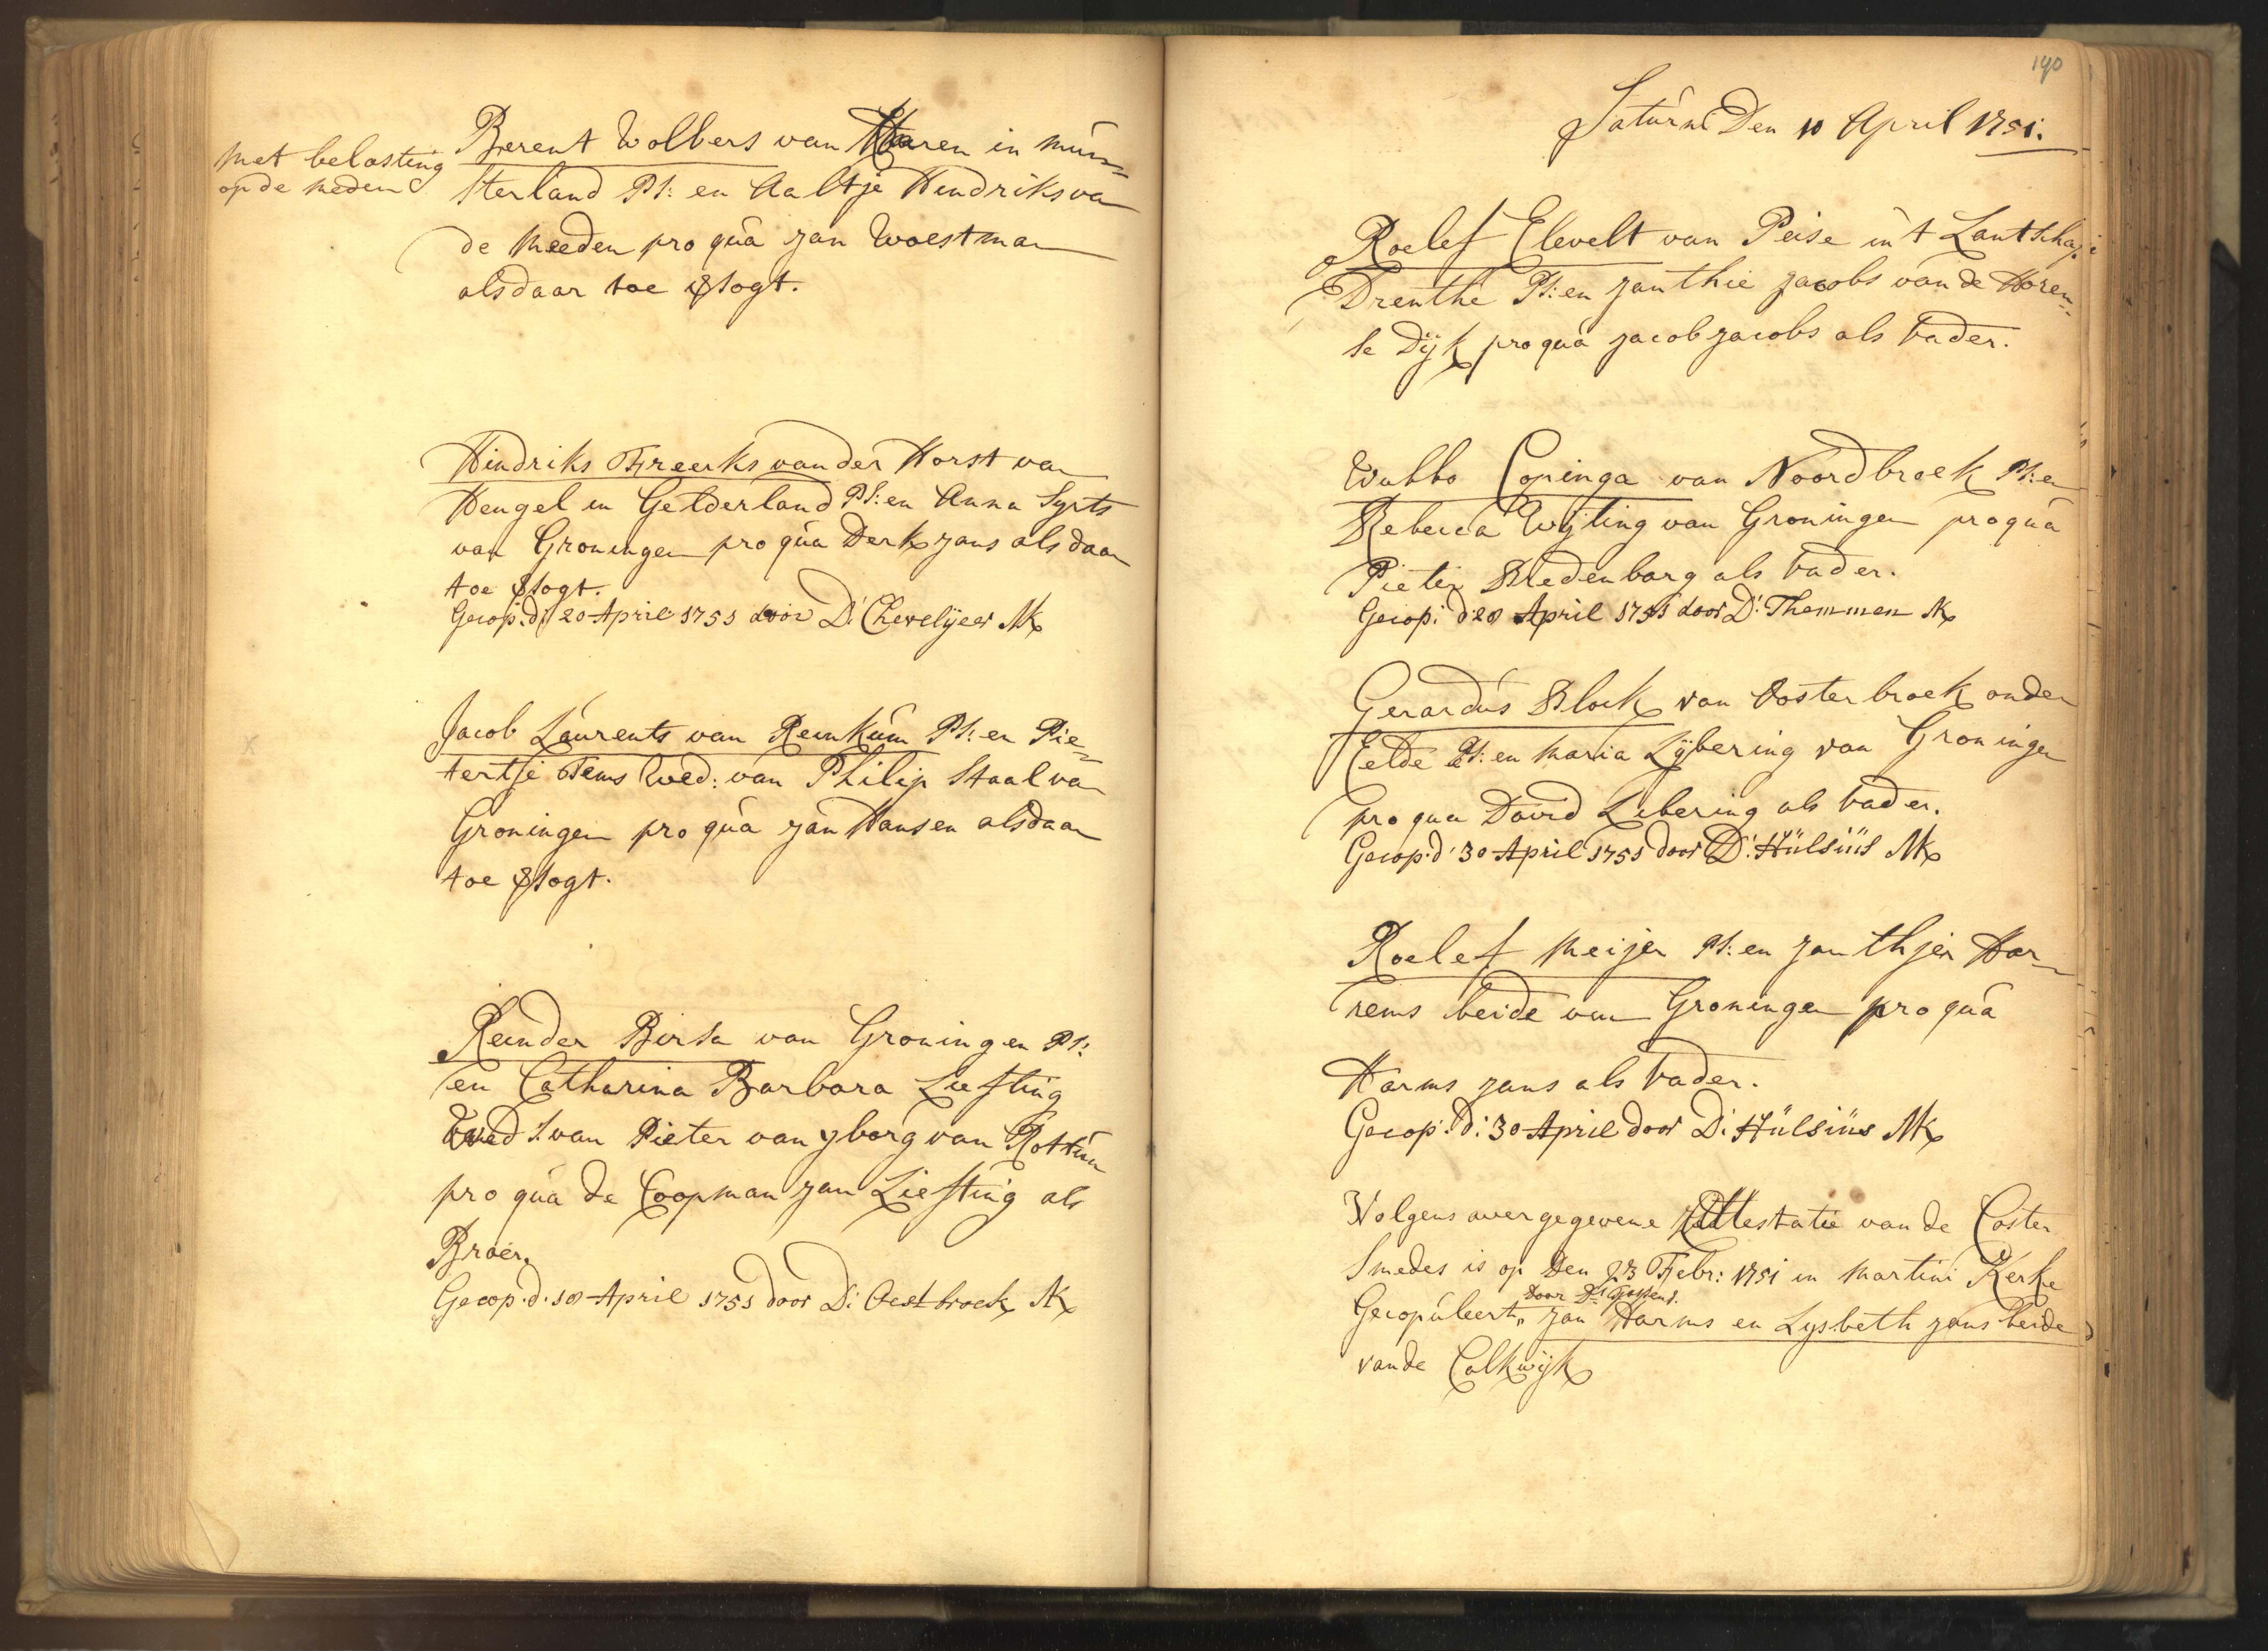 met belasting
op de meden
Berent Wolbers van Haren in mun-
sterland Ps: en Aaltje Hindriks van
de Meeden pro qua Jan Woestman
als daar toe versogt.
Hindriks Freerks van der Horst van
Hengel in Gelderland Ps: en Anna Syrts
van Groningen pro qua Derk Jans als daar
toe versogt.
Gecop: d: 20 April 1751 door D: Chevelijeer Mk
Jacob Laurents van Renkum Ps: en Pie-
tertje Tems Wed: van Philip Staal van
Groningen pro qua Jan Hansen als daar
toe versogt.
Reinder Birsa van Groningen Ps:
en Catharina Barbara Liefting
Wed s. van Pieter van Yborg van Rottum
pro qua de Coopman Jan Liefting als
Broer.
Gecop. d. 18 April 1751 door D: Oestbroek Mk
190
Saturni Den 10 April 1751.
Roelef Elevelt van Peise in 't Lantschap
Drenthe Ps: en Janthie Jacobs van de Horen-
se Dijk pro qua Jacob Jacobs als vader.
Wubbo Copinga van Noordbroek Ps: en
Rebecca Wijting van Groningen pro qua
Pieter Bredenborg als vader.
Gecop: d 28 April 1751 door D: Themmen Mk
Gerardus Block van Oosterbroek onder
Eelde Ps: en Maria Lijbering van Groningen
pro qua David Libering als vader.
Gecop: d: 30 April 1751 door D: Hülsiüs Mk
Roelef Meijer Ps: en Janthjen Har-
rems beide van Groningen pro qua
Harms Jans als vader.
Gecop: d: 30 April door D: Hülsiüs Mk
Volgens overgegevene Attestatie van de Coster
Smedes is op Den 23 Febr: 1751 in Martini Kerke
door Ds
Gecopuleert, Jan Harms en Lysbeth Jans beide
van de Calkwijk